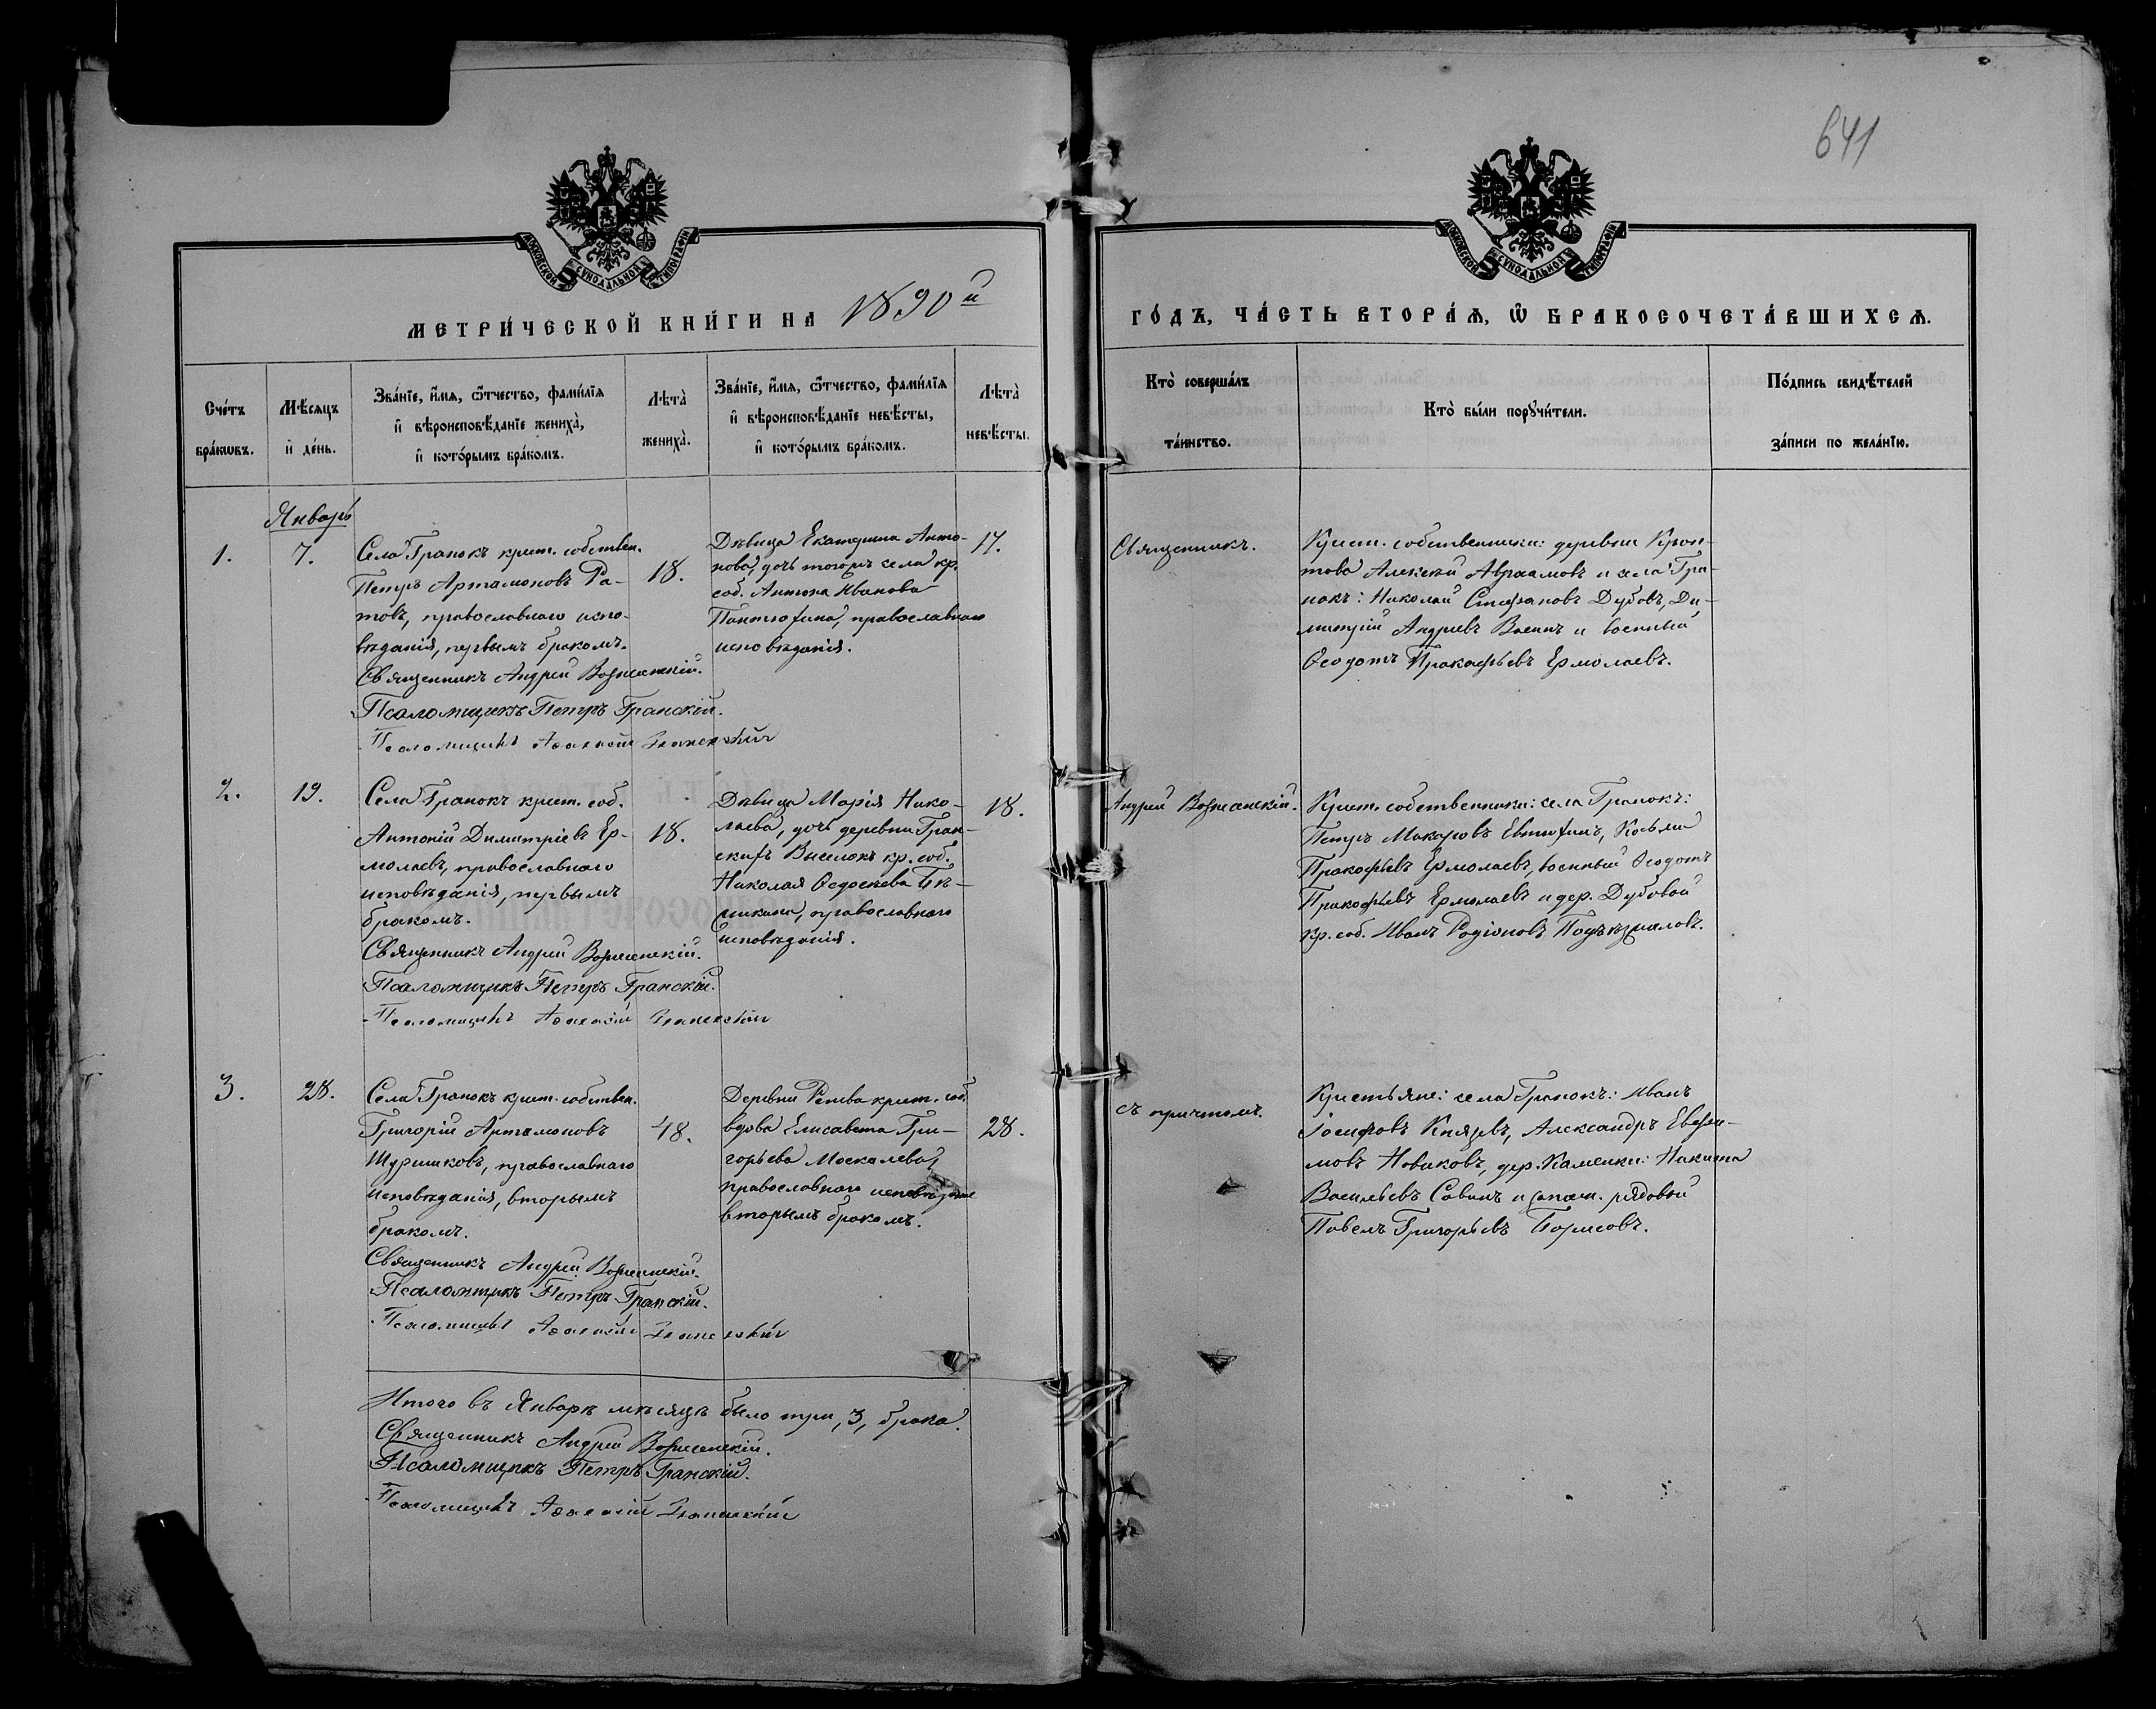 641
МОСКОВСКОЙ СѴНОДАЛЬНОЙ ТИПОГРАФІИ
МОСКОВСКОЙ СѴНОДАЛЬНОЙ ТИПОГРАФІИ
МЕТРИ́ЧЕСКОЙ КНИ́ГИ НА 1890й
ГО́ДЪ, ЧА́СТЬ ВТОРА́Ѧ, Ѿ БРАКОСОЧЕТА́ВШИХСѦ.
Сче́тъ
бра́кѡвъ.
Мѣ́сяцъ
и҆ де́нь.
Зва́нїе, и҆́мѧ, ѻ҆́тчество, фами́лїѧ
и҆ вѣроисповѣ́данїе жениха̀,
и҆ кото́рымъ бра́комъ.
Лѣта̀
жениха̀.
Зва́нїе, и҆́мѧ, ѻ҆́тчество, фами́лїѧ
и҆ вѣроисповѣ́данїе невѣ́сты,
и҆ кото́рымъ бра́комъ.
Лѣта̀
невѣ́сты.
Кто̀ соверша́лъ
та́инство.
Кто̀ бы́ли порꙋчи́тели.
По́дпись свидѣ́телей
за́писи по жела́нїю.
Январь
1.
7.
Села Гранокъ крест. собствен.
Петръ Артамоновъ Ра-
товъ, православнаго испо-
вѣданія, первымъ бракомъ.
Священникъ Андрей Вознесенскій.
Псаломщикъ Петръ Гранскій.
Псаломщикъ
18.
Дѣвица Екатерина Анто-
нова, дочь тогожъ села кр.
соб. Антона Иванова
Пантюхина, православнаго
исповѣданія.
17.
Священникъ.
Крест. собственники: деревни Крон-
това Алексѣй Авраамовъ и села Гра-
нокъ: Николай Стефановъ Дубовъ, Ди-
митрій Андреевъ и военный
Ѳеодотъ Прокофьевъ Ермолаевъ.
2.
19.
Села Гранокъ крест. соб.
Антоній Димитріевъ Ер-
молаевъ, православнаго
исповѣданія, первымъ
бракомъ.
Священникъ Андрей Вознесенскій.
Псаломщикъ Петръ Гранскій.
Псаломщикъ
18.
Дѣвица Марія Нико-
лаева, дочь деревни Гран-
скихъ Выселокъ кр. соб.
Николая Ѳедосеева
православнаго
исповѣданія.
18.
Андрей Вознесенскій.
Крест. собственники: села Гранокъ:
Петръ Макаровъ Евтюхинъ, Косьма
Прокофьевъ Ермолаевъ, военный Ѳеодотъ
Прокофьевъ Ермолаевъ и дер. Дубовой
кр. соб. Иванъ Родіоновъ
3.
28.
Села Гранокъ крест. собствен.
Григорій Артамоновъ
православнаго
исповѣданія, вторымъ
бракомъ.
Священникъ Андрей Вознесенскій.
Псаломщикъ Петръ Гранскій.
Псаломщикъ
48.
Деревни крест. соб.
вдова Елисавета Гри-
горьева Москалева,
православнаго исповѣданія
вторымъ бракомъ.
28.
съ причтомъ.
Крестьяне: села Гранокъ: Иванъ
Іосифовъ Князевъ, Александръ Евфи-
мовъ Новиковъ, дер. Каменки: Никита
Васильевъ Савинъ и рядовой
Павелъ Григорьевъ Борисовъ.
Итого въ Январѣ мѣсяцѣ было три, 3, брака.
Священникъ Андрей Вознесенскій.
Псаломщикъ Петръ Гранскій.
Псаломщикъ